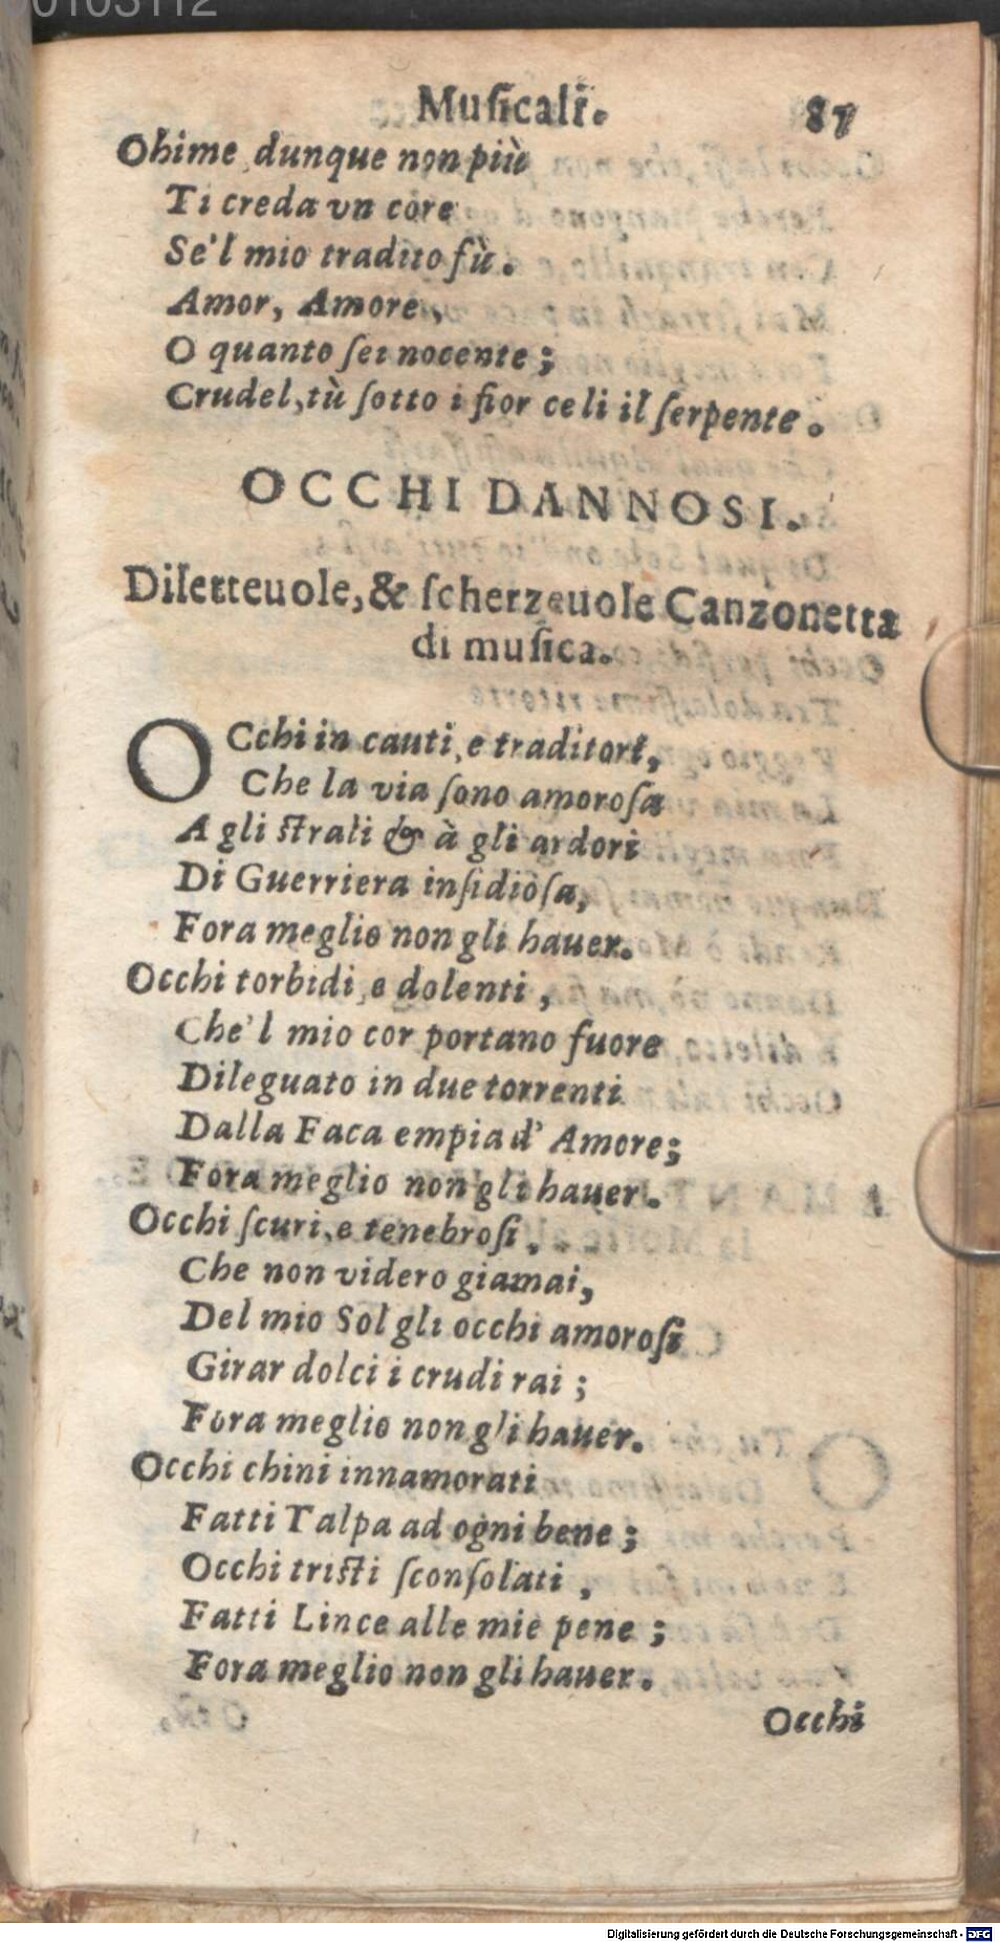 00103112
Muſicali. 87
Ohime dunque non più
Ti creda vn core
Se'l mio tradito fù.
Amor, Amore,
O quanto ſei nocente;
Crudel, tù ſotto i fior celi il ſerpente.
OCCHI DANNOSI.
Diletteuole, & ſcherzeuole Canzonetta
di muſica.
OCchi in cauti, e traditori,
Che la via ſono amoroſa
A gli ſtrali & à gli ardori
Di Guerriera inſidioſa,
Fora meglio non gli hauer.
Occhi torbidi, e dolenti,
Che'l mio cor portano fuore
Dileguato in due torrenti
Dalla Faca empia d' Amore;
Fora meglio non gli hauer.
Occhi ſcuri, e tenebroſi,
Che non videro giamai,
Del mio Sol gli occhi amoroſi
Girar dolci i crudi rai;
Fora meglio non gli hauer.
Occhi chini innamorati
Fatti Talpa ad ogni bene;
Occhi triſti ſconſolati,
Fatti Lince alle mie pene;
Fora meglio non gli hauer.
Occhi
Digitalisierung gefördert durch die Deutsche Forschungsgemeinschaft - DFG